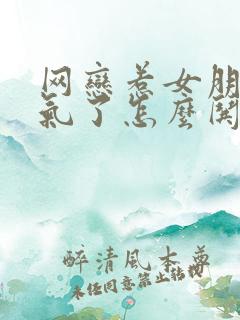 网恋惹女朋
氣了怎麼
醉清風本尊
未经同意禁止转协